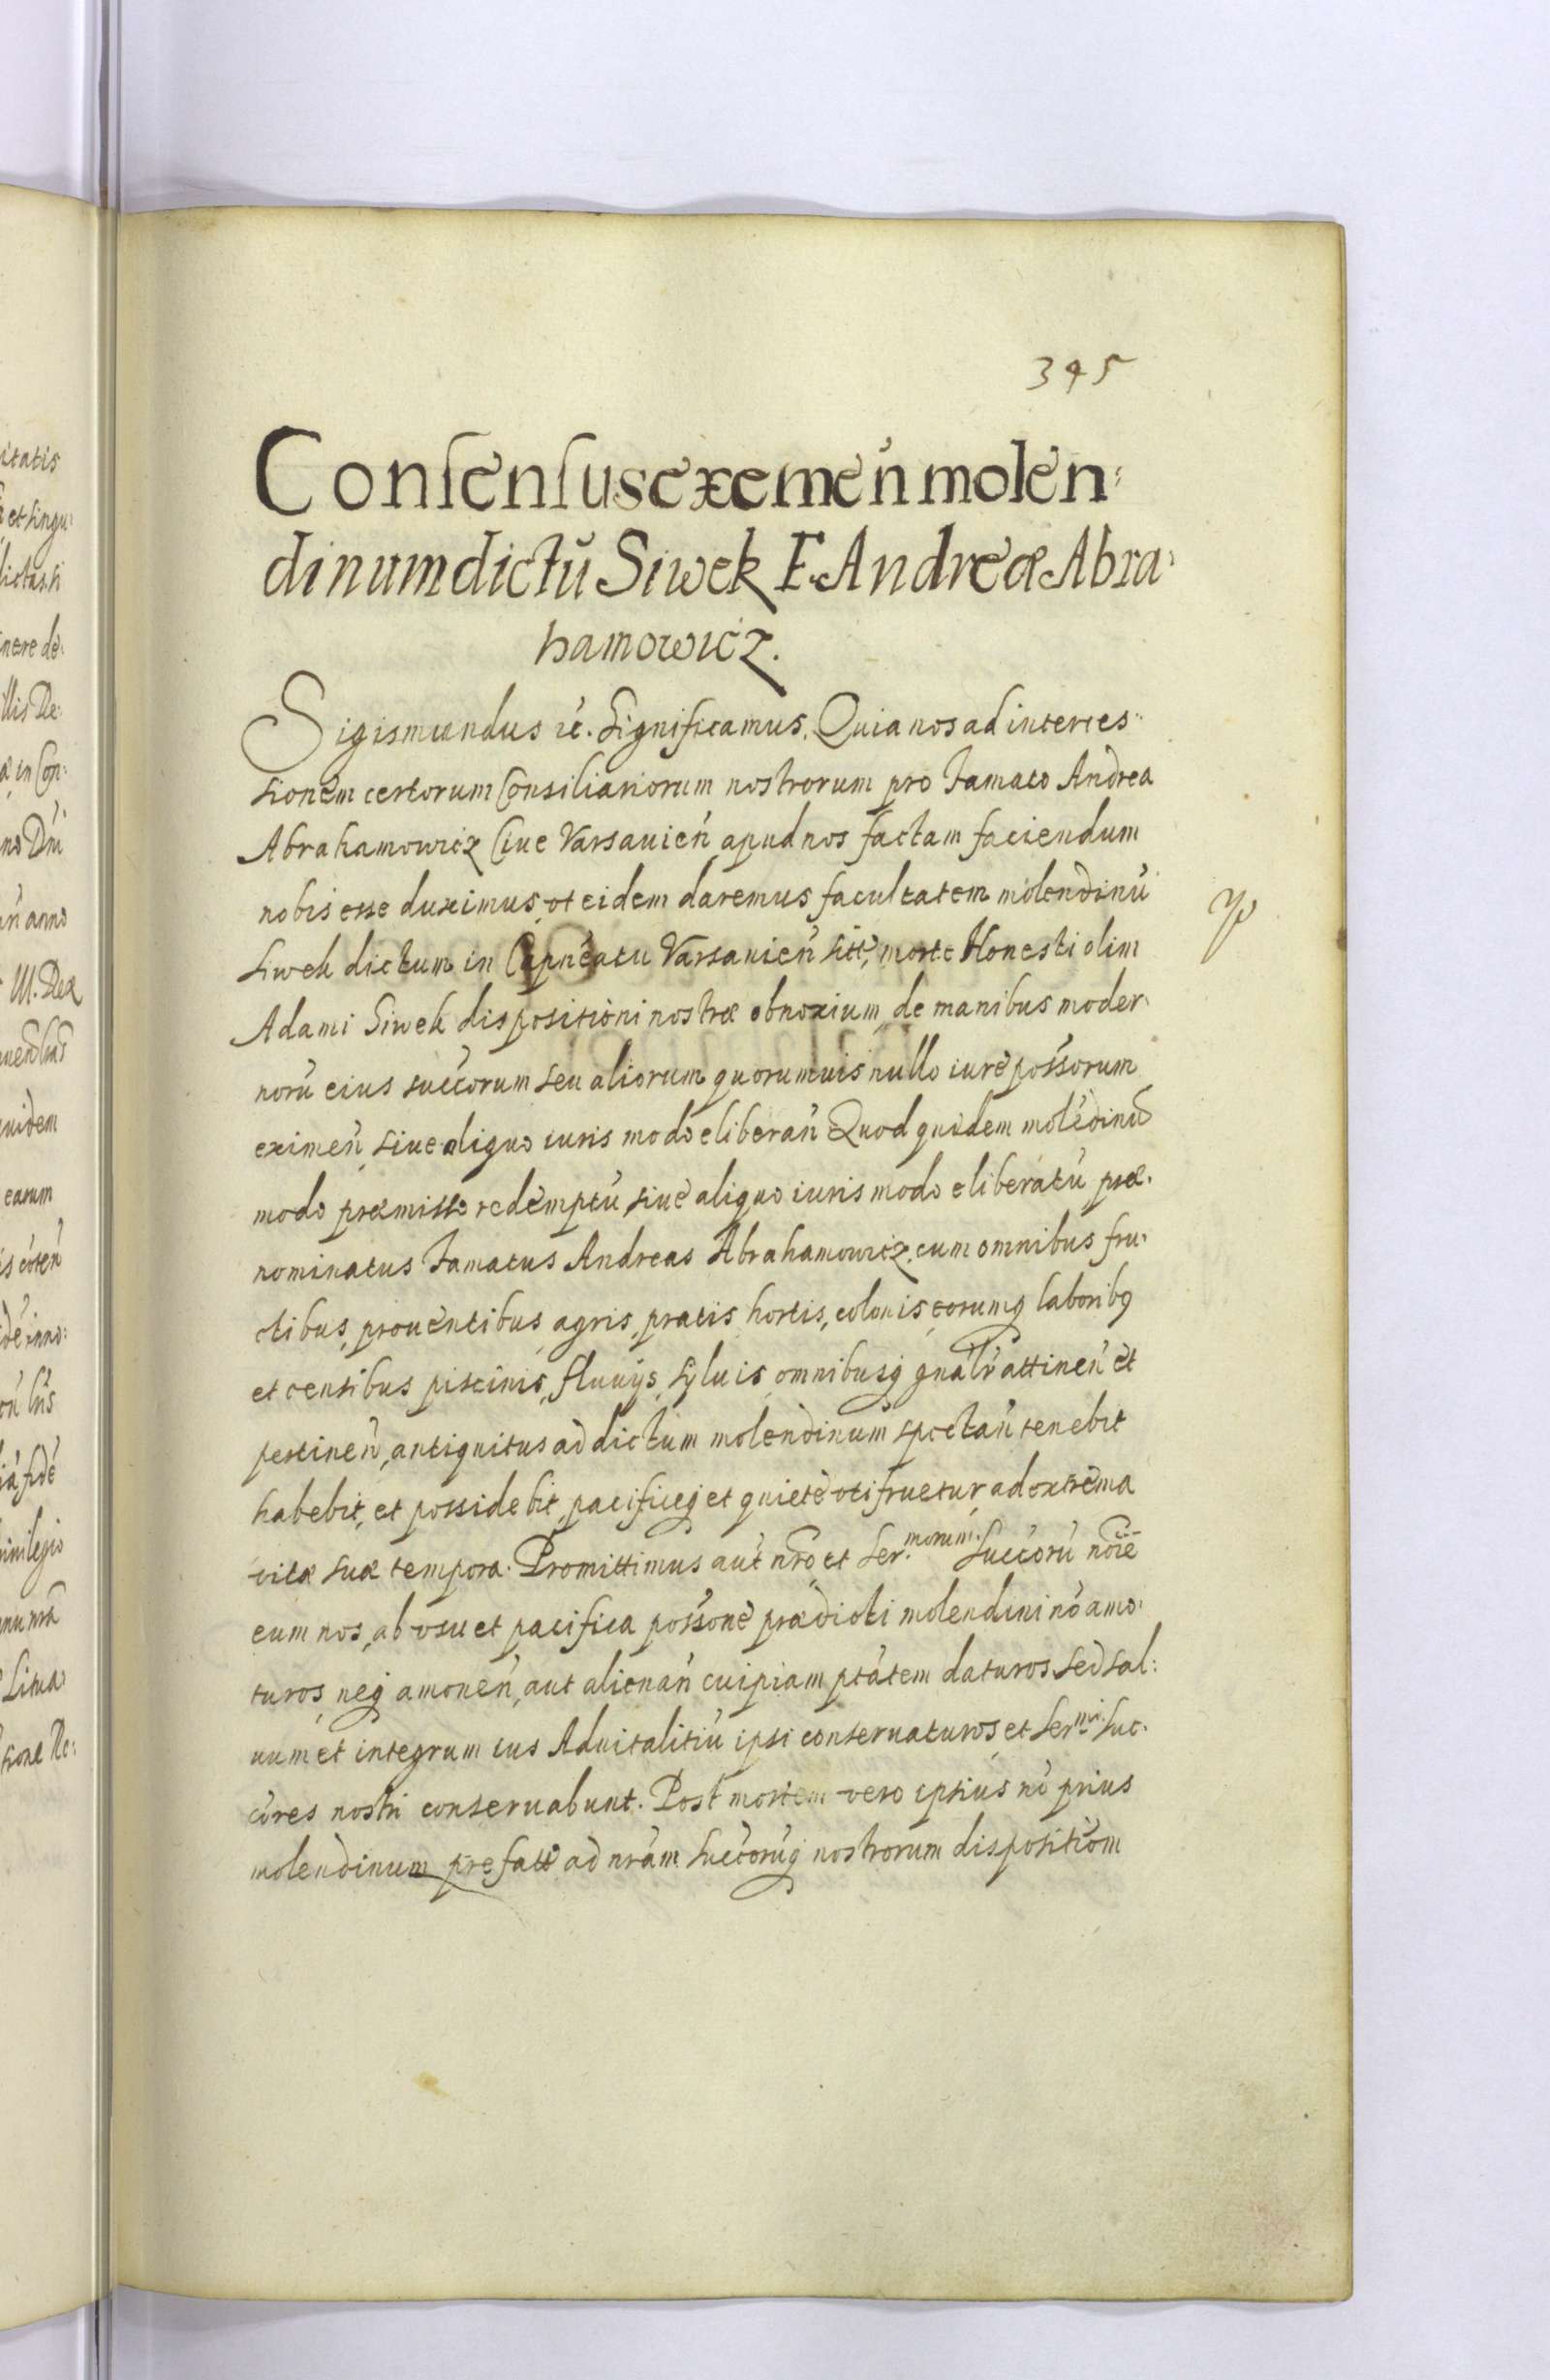 345
Consensus eximeń molen:
dinum dictũ Siwek F. Andreæ Abra:
hamowicz.
Sigismundus &c. Significamus. Quia nos ad interces:
sionem certorum Consiliariorum nostrorum pro Famato Andrea
Abrahamowicz Ciue Varsauień apud nos factam faciendum
nobis esse duximus, vt eidem daremus facultatem molendinũ
Siwek dictum in Capneatu Varsauień sitt, morte Honesti olim
Adami Siwek dispositioni nostræ obnoxium, de manibus moder:
norũ eius succorum seu aliorum quorumuis nullo iure possorum
eximeń, siue aliquo iuris modo eliberań Quod quidem molẽdinũ
modo præmisso redemptũ siue aliquo iuris modo eliberatũ præ:
nominatus Famatus Andreas Abrahamowicz cum omnibus fru:
ctibus, prouentibus, agris, pratis, hortis, colonis, eorumq laborib9
et censibus piscinis, fluuijs, syluis, omnibusq gnalr attineń et
pertineń, antiquitus ad dictum molendinum spectań tenebit
habebit, et possidebit, pacificeq et quiete vtifruetur ad extrema
vitæ suæ tempora. Promittimus aut nro et Ser.morum. Succorũ noie
eum nos, ab vsu et pacifica possone prædicti molendini nõ amo:
turos, neq amoueń, aut alienań cuipiam ptatem daturos sed sal:
uum et integrum ius Aduitalitiũ ipsi conseruaturos, et Ser.mi Suc:
cores nostri conseruabunt. Post mortem vero ipsius nõ prius
molendinum prefatt ad nram succorũq nostrorum dispositiom